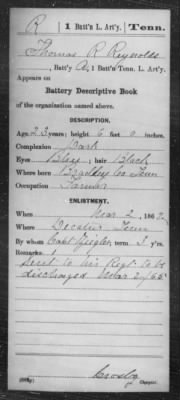 R | 1 Batt'n L. Art'y. | Tenn.
Thomas R Reynolds
, Batt'y A, 1 Batt'n Tenn. L. Art'y.
Appears on
Battery Descriptive Book
of the organization named above.
DESCRIPTION.
Age 23 years; height 6 feet 0 inches.
Complexion Dark
Eyes ; hair Black
Where born Bradley Co Tenn
Occupation Farmer
ENLISTMENT.
When Mar 2, 186
Where Decatur Tenn
By whom Capt ; term 3 y'rs.
Remarks:
Sent to his Regt. to be
discharged Mar 2/65
Crosby
Copyist.